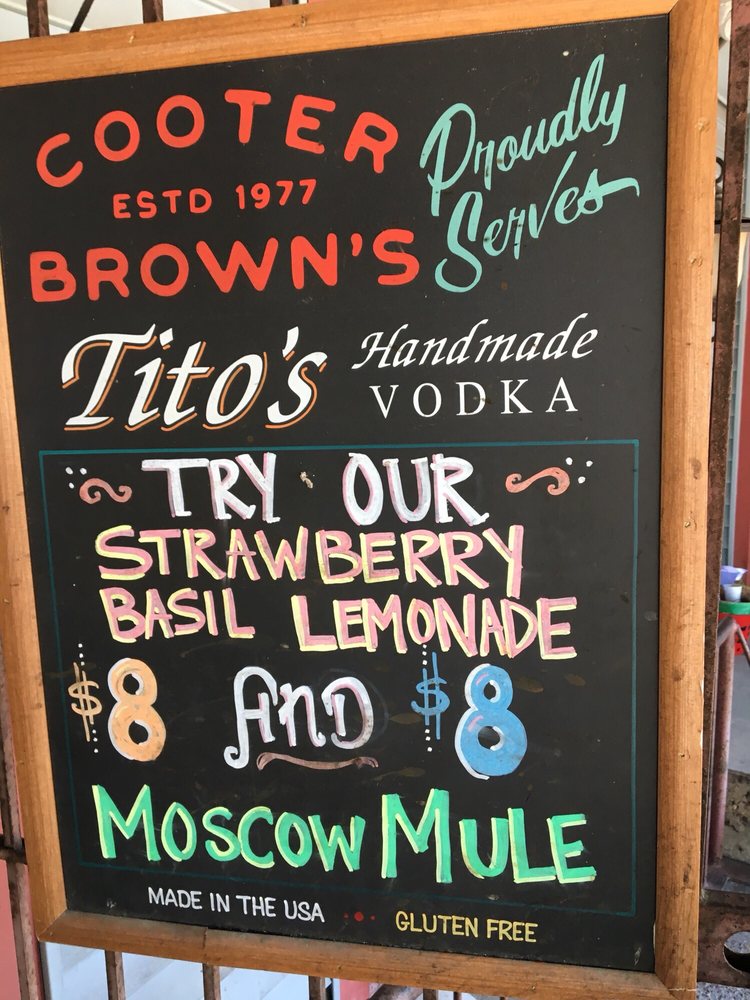 COOTER
ESTD 1977
BROWN'S
Proudly
Serves
Tito's Handmade
VODKA
TRY OUR
STRAWBERRY
BASIL LEMONADE
$8 AND $8
MOSCOW MULE
MADE IN THE USA
GLUTEN FREE